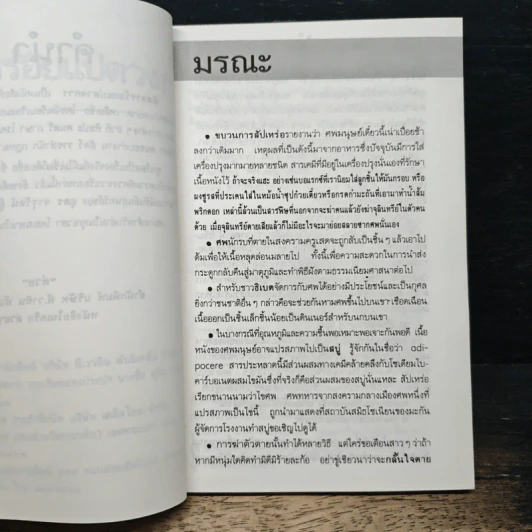 มรณะ
● ขบวนการสัปเหร่อรายงานว่า ศพมนุษย์เดี๋ยวนี้เน่าเปื่อยช้า
ลงกว่าเดิมมาก เหตุผลที่เป็นดังนี้มาจากอาหารซึ่งปัจจุบันมีการใส่
เครื่องปรุงมากมายหลายชนิด สารเคมีที่มีอยู่ในเครื่องปรุงนั่นเองที่รักษา
เนื้อหนังไว้ ถ้าจะจริงแฮะ อย่างเช่นบอแรกซ์ที่เรานิยมใส่ลูกชิ้นให้มันกรอบ หรือ
ผงชูรสที่ประเคนใส่ในหม้อน้ำซุปก๋วยเตี๋ยวหรือกรดกำมะถันที่เอามาทำน้ำส้ม
พริกดอก เหล่านี้ล้วนเป็นสารพิษที่นอกจากจะฆ่าคนแล้วยังฆ่าจุลินทรีย์ในตัวคน
ด้วย เมื่อจุลินทรีย์ตายเสียแล้วก็ไม่มีอะไรจะมาย่อยสลายซากศพนั่นเอง
● ศพนักรบที่ตายในสงครามครูเสดจะถูกสับเป็นชิ้น ๆ แล้วเอาไป
ต้มเพื่อให้เนื้อหลุดล่อนมลายไป ทั้งนี้เพื่อความสะดวกในการนำส่ง
กระดูกกลับคืนสู่มาตุภูมิและทำพิธีฝังตามธรรมเนียมศาสนาต่อไป
● สำหรับชาวธิเบตจัดการกับศพได้อย่างมีประโยชน์และเป็นกุศล
ยิ่งกว่าชนชาติอื่น ๆ กล่าวคือจะช่วยกันหามศพขึ้นไปบนเขา เชือดเฉือน
เนื้อออกเป็นชิ้นเล็กชิ้นน้อยเป็นดินเนอร์สำหรับนกบนเขา
● ในบางกรณีที่อุณหภูมิและความชื้นพอเหมาะพอเจาะกันพอดี เนื้อ
หนังของศพมนุษย์อาจแปรสภาพไปเป็นสบู่ รู้จักกันในชื่อว่า adi-
pocere สารประหลาดนี้มีส่วนผสมทางเคมีคล้ายคลึงกับโซเดียมไบ-
คาร์บอเนตผสมไขมันซึ่งที่จริงก็คือส่วนผสมของสบู่นั่นแหละ สัปเหร่อ
เรียกขนานนามว่าไขศพ ศพทหารจากสงครามกลางเมืองศพหนึ่งที่
แปรสภาพเป็นไขนี้ ถูกนำมาแสดงที่สถาบันสมิธโซเนียนของมะกัน
ผู้จัดการโรงงานทำสบู่ขอเชิญไปดูได้
● การฆ่าตัวตายนั้นทำได้หลายวิธี แต่ใคร่ขอเตือนสาว ๆ ว่าถ้า
หากมีหนุ่มใดคิดทำมิดีมิร้ายละก้อ อย่าขู่เชียวนาว่าจะกลั้นใจตาย